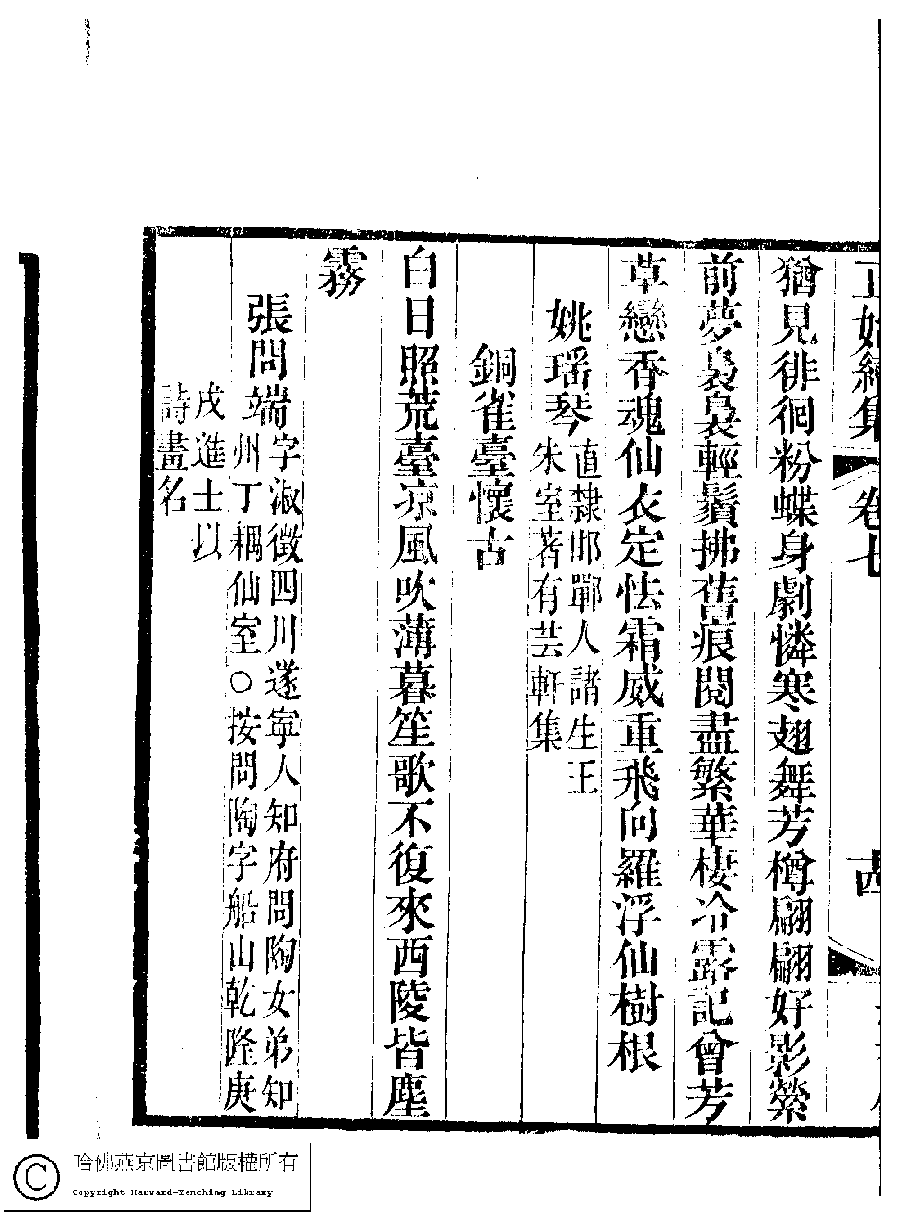 正始續集 卷七
猶見徘徊粉蝶身劇憐寒翅舞芳樽翩翩好影縈
前夢裊裊輕鬚拂舊痕閱盡繁華棲冷露記曾芳
草戀香魂仙衣定怯霜威重飛向羅浮仙樹根
姚瑶琴
直隸邯鄲人諸生王
朱室著有芸軒集
銅雀臺懷古
白日照荒臺凉風吹薄暮笙歌不復來西陵皆塵
霧
張問端
字淑徵四川遂寧人知府問陶女弟知
州丁耦仙室○按問陶字船山乾隆庚
戌進士以
詩畫名
哈佛燕京圖書館版權所有
Copyright Harvard-Yenching Library